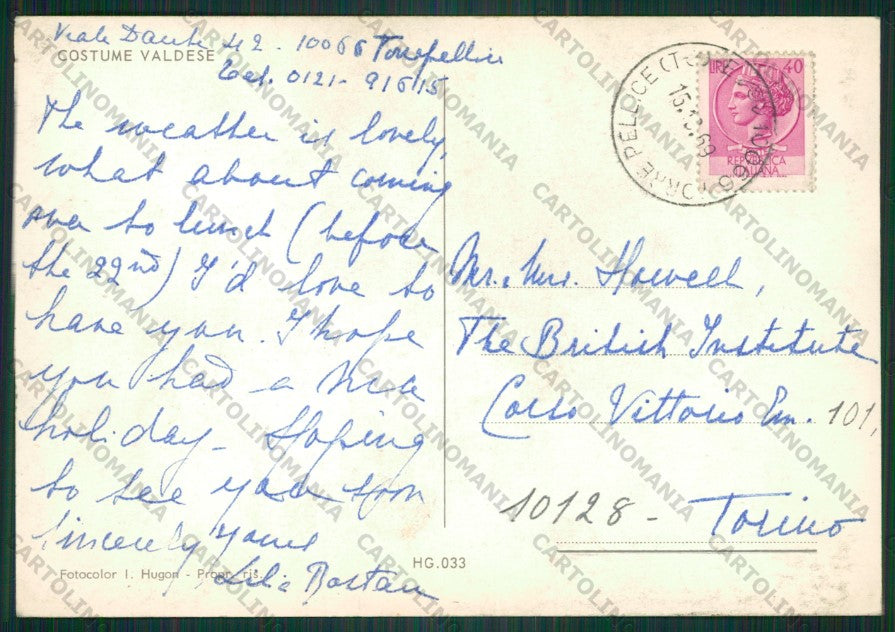 Viale Dante 42 - 10066 Torrepellice
COSTUME VALDESE
Tel. 0121 - 91615
The weather is lovely,
what about coming
over to lunch (before
the 22nd) I'd love to
have you. I hope
you had a nice
holiday - Hoping
to see you soon
Sincerely Yours
Lilia Rostan
Fotocolor I. Hugon - Propr. ris.
HG.033
TORRE PELLICE (TO)
10066
LIRE 40
REPUBBLICA
ITALIANA
Mr. Mrs. Howell,
The British Institute
Corso Vittorio Em. 101,
10128 - Torino
CARTOLINOMANIA